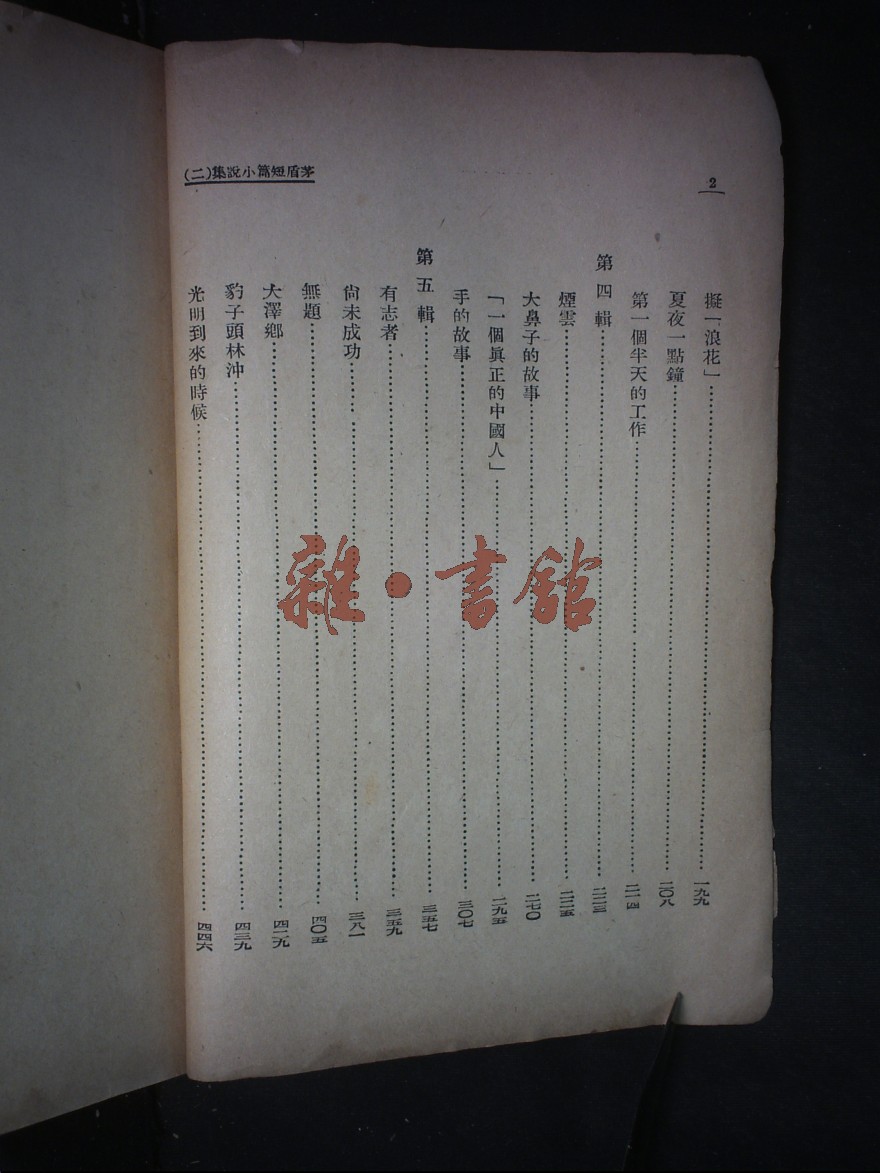 茅盾短篇小說集(二)
2
擬「浪花」…………一九九
夏夜一點鐘…………二〇八
第一個半天的工作…………二一四
第四輯…………二二三
煙雲…………二二五
大鼻子的故事…………二七〇
「一個眞正的中國人」…………二九五
手的故事…………三〇七
第五輯…………三五七
有志者…………三五九
尙未成功…………三八一
無題…………四〇五
大澤鄉…………四二九
豹子頭林沖…………四三九
光明到來的時候…………四四六
雜·書館